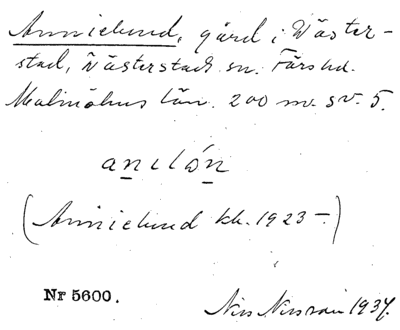 Annielund, gård i Väster-
stad, Västerstads sn. Färs hd.
Malmöhus län. 200 m. sv. 5.
(Annielund kb. 1923 –)
Nr 5600.
1937.